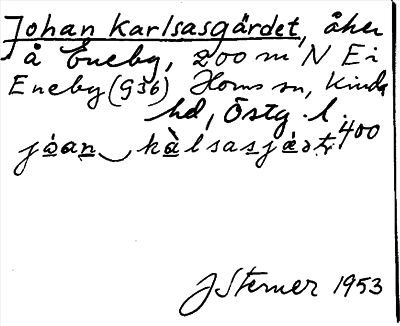 Johan Karlsasgärdet, åker
å Eneby, 200 m N Ei
Eneby (G36) Horns sn, Kinda
hd, Östg. l.
400
J Sterner 1953